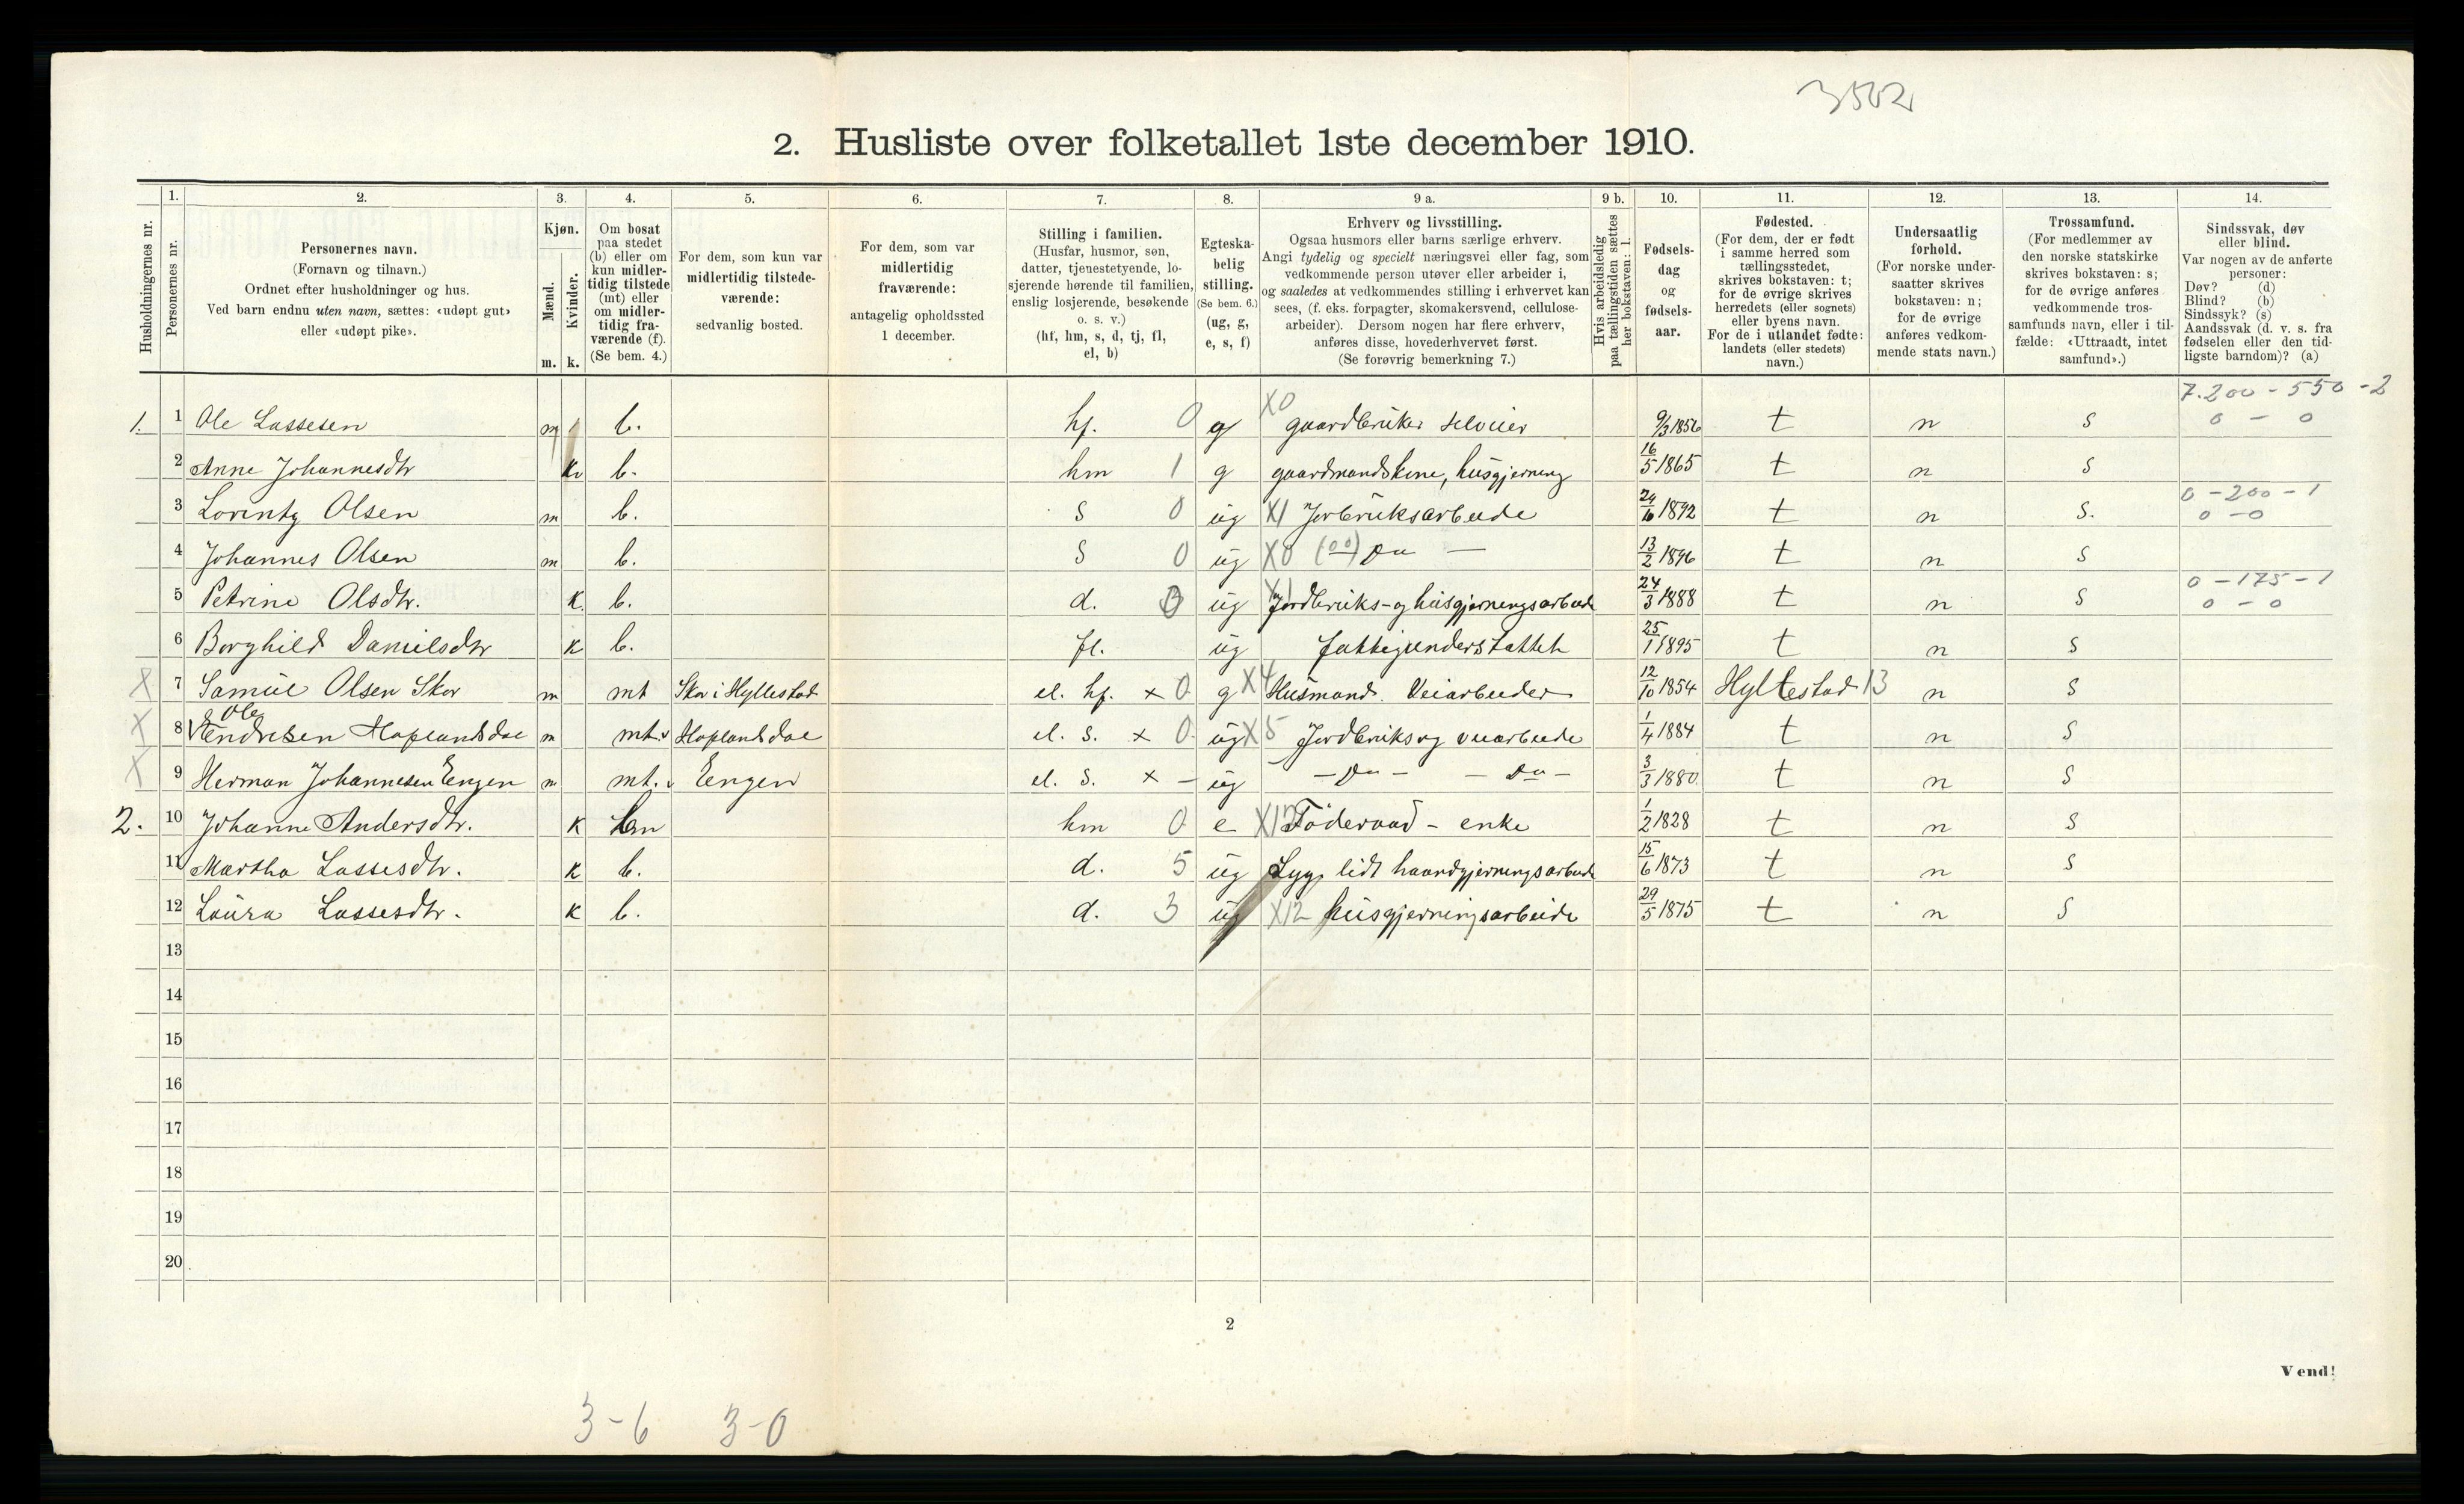 3502
2. Husliste over folketallet 1ste december 1910.
Husholdningernes nr.
1.
Personernes nr.
2.
Personernes navn.
(Fornavn og tilnavn.)
Ordnet efter husholdninger og hus.
Ved barn endnu uten navn, sættes: «udøpt gut»
eller «udøpt pike».
3.
Kjøn.
Mænd.
Kvinder.
m. k.
4.
Om bosat
paa stedet
(b) eller om
kun midler-
tidig tilstede
(mt) eller
om midler-
tidig fra-
værende (f).
(Se bem. 4.)
5.
For dem, som kun var
midlertidig tilstede-
værende:
sedvanlig bosted.
6.
For dem, som var
midlertidig
fraværende:
antagelig opholdssted
1 december.
7.
Stilling i familien.
(Husfar, husmor, søn,
datter, tjenestetyende, lo-
sjerende hørende til familien,
enslig losjerende, besøkende
o. s. v.)
(hf, hm, s, d, tj, fl,
el, b)
8.
Egteska-
belig
stilling.
(Se bem. 6.)
(ug, g,
e, s, f)
9 a.
Erhverv og livsstilling.
Ogsaa husmors eller barns særlige erhverv.
Angi tydelig og specielt næringsvei eller fag, som
vedkommende person utøver eller arbeider i,
og saaledes at vedkommendes stilling i erhvervet kan
sees, (f. eks. forpagter, skomakersvend, cellulose-
arbeider). Dersom nogen har flere erhverv,
anføres disse, hovederhvervet først.
(Se forøvrig bemerkning 7.)
9 b.
Hvis arbeidsledig
paa tællingstiden sættes
her bokstaven: l.
10.
Fødsels-
dag
og
fødsels-
aar.
11.
Fødested.
(For dem, der er født
i samme herred som
tællingsstedet,
skrives bokstaven: t;
for de øvrige skrives
herredets (eller sognets)
eller byens navn.
For de i utlandet fødte:
landets (eller stedets)
navn.)
12.
Undersaatlig
forhold.
(For norske under-
saatter skrives
bokstaven: n;
for de øvrige
anføres vedkom-
mende stats navn.)
13.
Trossamfund.
(For medlemmer av
den norske statskirke
skrives bokstaven: s;
for de øvrige anføres
vedkommende tros-
samfunds navn, eller i til-
fælde: «Uttraadt, intet
samfund».)
14.
Sindssvak, døv
eller blind.
Var nogen av de anførte
personer:
Døv? (d)
Blind? (b)
Sindssyk? (s)
Aandssvak (d. v. s. fra
fødselen eller den tid-
ligste barndom)? (a)
7.200 - 550 - 2
1. 1 Ole Lassesen m b. hf. 0 g X0 gaardbruker selveier 9/3 1856 t n s 0 - 0
2 Anne Johannesdtr k b. hm 1 g gaardmandskone, husgjerning 16/5 1865 t n s
0 - 200 - 1
3 Lorentz Olsen m b. s 0 ug X1 Jorbruksarbeide 24/6 1892 t n s. 0 - 0
4 Johannes Olsen m b. s 0 ug X0 (00) Do — 13/2 1896 t n s
0 - 175 - 1
5 Petrine Olsdtr. k. b. d. 3 ug X1 Jordbruks- og husgjerningsarbeide 24/3 1888 t n s 0 - 0
6 Borghild Danielsdtr k b. fl. ug fattigunderstøttet 25/1 1895 t n s
X 7 Samuel Olsen Skor m mt Skor i Hyllestad el. hf. x 0 g X4 Husmand. Veiarbeider 12/10 1854 Hyllestad 13 n s
Ole
X 8 Endresen Hoplandsdal m mt. Hoplandsdal el. s. x 0 ug X5 Jordbruks og veiarbeide 1/4 1884 t n s
X 9 Herman Johannesen Engen m mt. Engen el. s. x - ug - Do - - Do - 3/3 1880. t n s
2. 10 Johanne Andersdtr. k hm 0 e X12 Föderaad - enke 1/2 1828 t n s
11 Martha Lassesdtr. k b. d. 5 ug Syg, lidt haandgjerningsarbeide 15/6 1873 t n s
12 Laura Lassesdtr. k b. d. 3 ug X12 husgjerningsarbeide 29/5 1875 t n s
13
14
15
16
17
18
19
20
2
Vend!
3-6 3-0